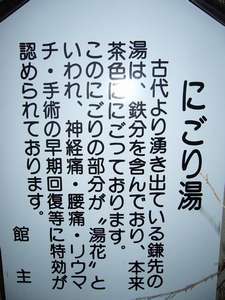 にごり湯
古代より湧き出ている鎌先の
湯は、鉄分を含んでおり、本来
茶色ににごっております。
このにごりの部分が〝湯花〟と
いわれ、神経痛・腰痛・リウマ
チ・手術の早期回復等に特効が
認められております。
館主